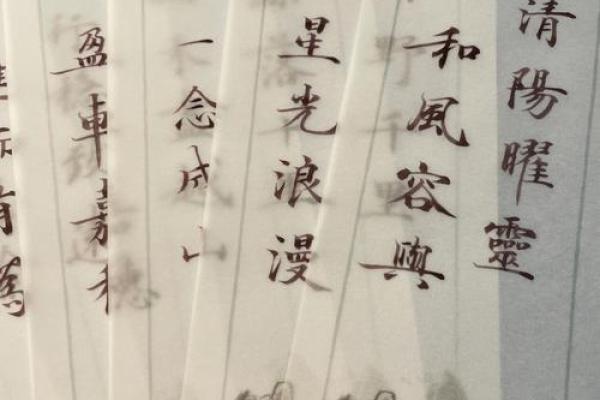 清陽曜靈
和風容與
星光浪漫
一念成山
盈車嘉穗